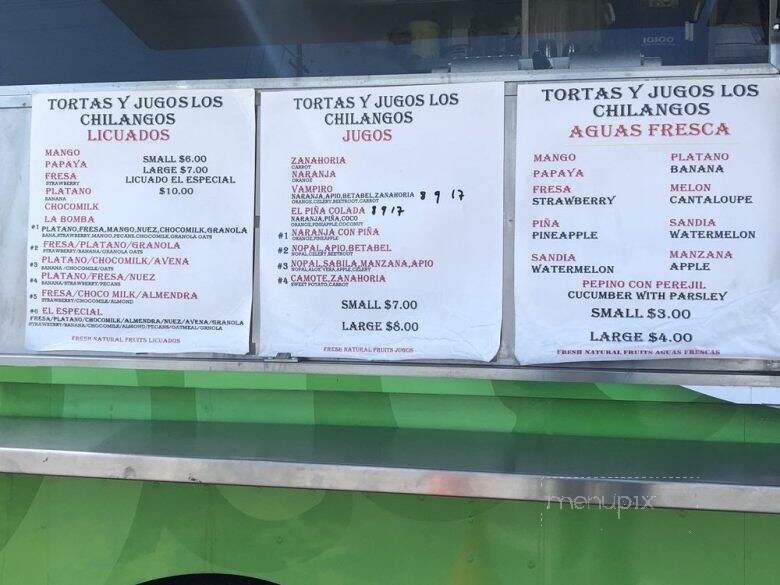 TORTAS Y JUGOS LOS
CHILANGOS
LICUADOS
MANGO
PAPAYA
FRESA
STRAWBERRY
PLATANO
BANANA
CHOCOMILK
LA BOMBA
SMALL $6.00
LARGE $7.00
LICUADO EL ESPECIAL
$10.00
#1 PLATANO,FRESA,MANGO,NUEZ,CHOCOMILK,GRANOLA
BANA,STRAWBERRY,MANGO,PECANS,CHOCOMILK,GRANOLA OATS
#2 FRESA/PLATANO/GRANOLA
STRAWBERRY/BANANA/GRANOLA OATS
#3 PLATANO/CHOCOMILK/AVENA
BANANA /CHOCOMILK/OATS
#4 PLATANO/FRESA/NUEZ
BANANA/STRAWBERRY/PECANS
#5 FRESA/CHOCO MILK/ALMENDRA
STRAWBERRY/CHOCOMILK/ALMOND
#6 EL ESPECIAL
FRESA/PLATANO/CHOCOMILK/ALMENDRA/NUEZ/AVENA/GRANOLA
STRAWBERRY/BANANA/CHOCOMILK/ALMOND/PECANS/OATMEAL/GRNOLA
FRESH NATURAL FRUITS LICUADOS
TORTAS Y JUGOS LOS
CHILANGOS
JUGOS
ZANAHORIA
CARROT
NARANJA
ORANGE
VAMPIRO
NARANJA,APIO,BETABEL,ZANAHORIA 8 9 17
ORANGE,CELERY,BEETROOT,CARROT
EL PIÑA COLADA 8 9 17
NARANJA,PIÑA,COCO
ORANGE,PINEAPPLE,COCONUT
#1 NARANJA CON PIÑA
ORANGE,PINEAPPLE
#2 NOPAL,APIO,BETABEL
NOPAL,CELERY,BEETROUT
#3 NOPAL,SABILA,MANZANA,APIO
NOPAL,ALOE VERA,APPLE,CELERY
#4 CAMOTE,ZANAHORIA
SWEET POTATO,CARROT
SMALL $7.00
LARGE $8.00
FRESH NATURAL FRUITS JUGOS
TORTAS Y JUGOS LOS
CHILANGOS
AGUAS FRESCA
MANGO
PAPAYA
FRESA
STRAWBERRY
PIÑA
PINEAPPLE
SANDIA
WATERMELON
PLATANO
BANANA
MELON
CANTALOUPE
SANDIA
WATERMELON
MANZANA
APPLE
PEPINO CON PEREJIL
CUCUMBER WITH PARSLEY
SMALL $3.00
LARGE $4.00
FRESH NATURAL FRUITS AGUAS FRESCAS
IGIGO
menupix